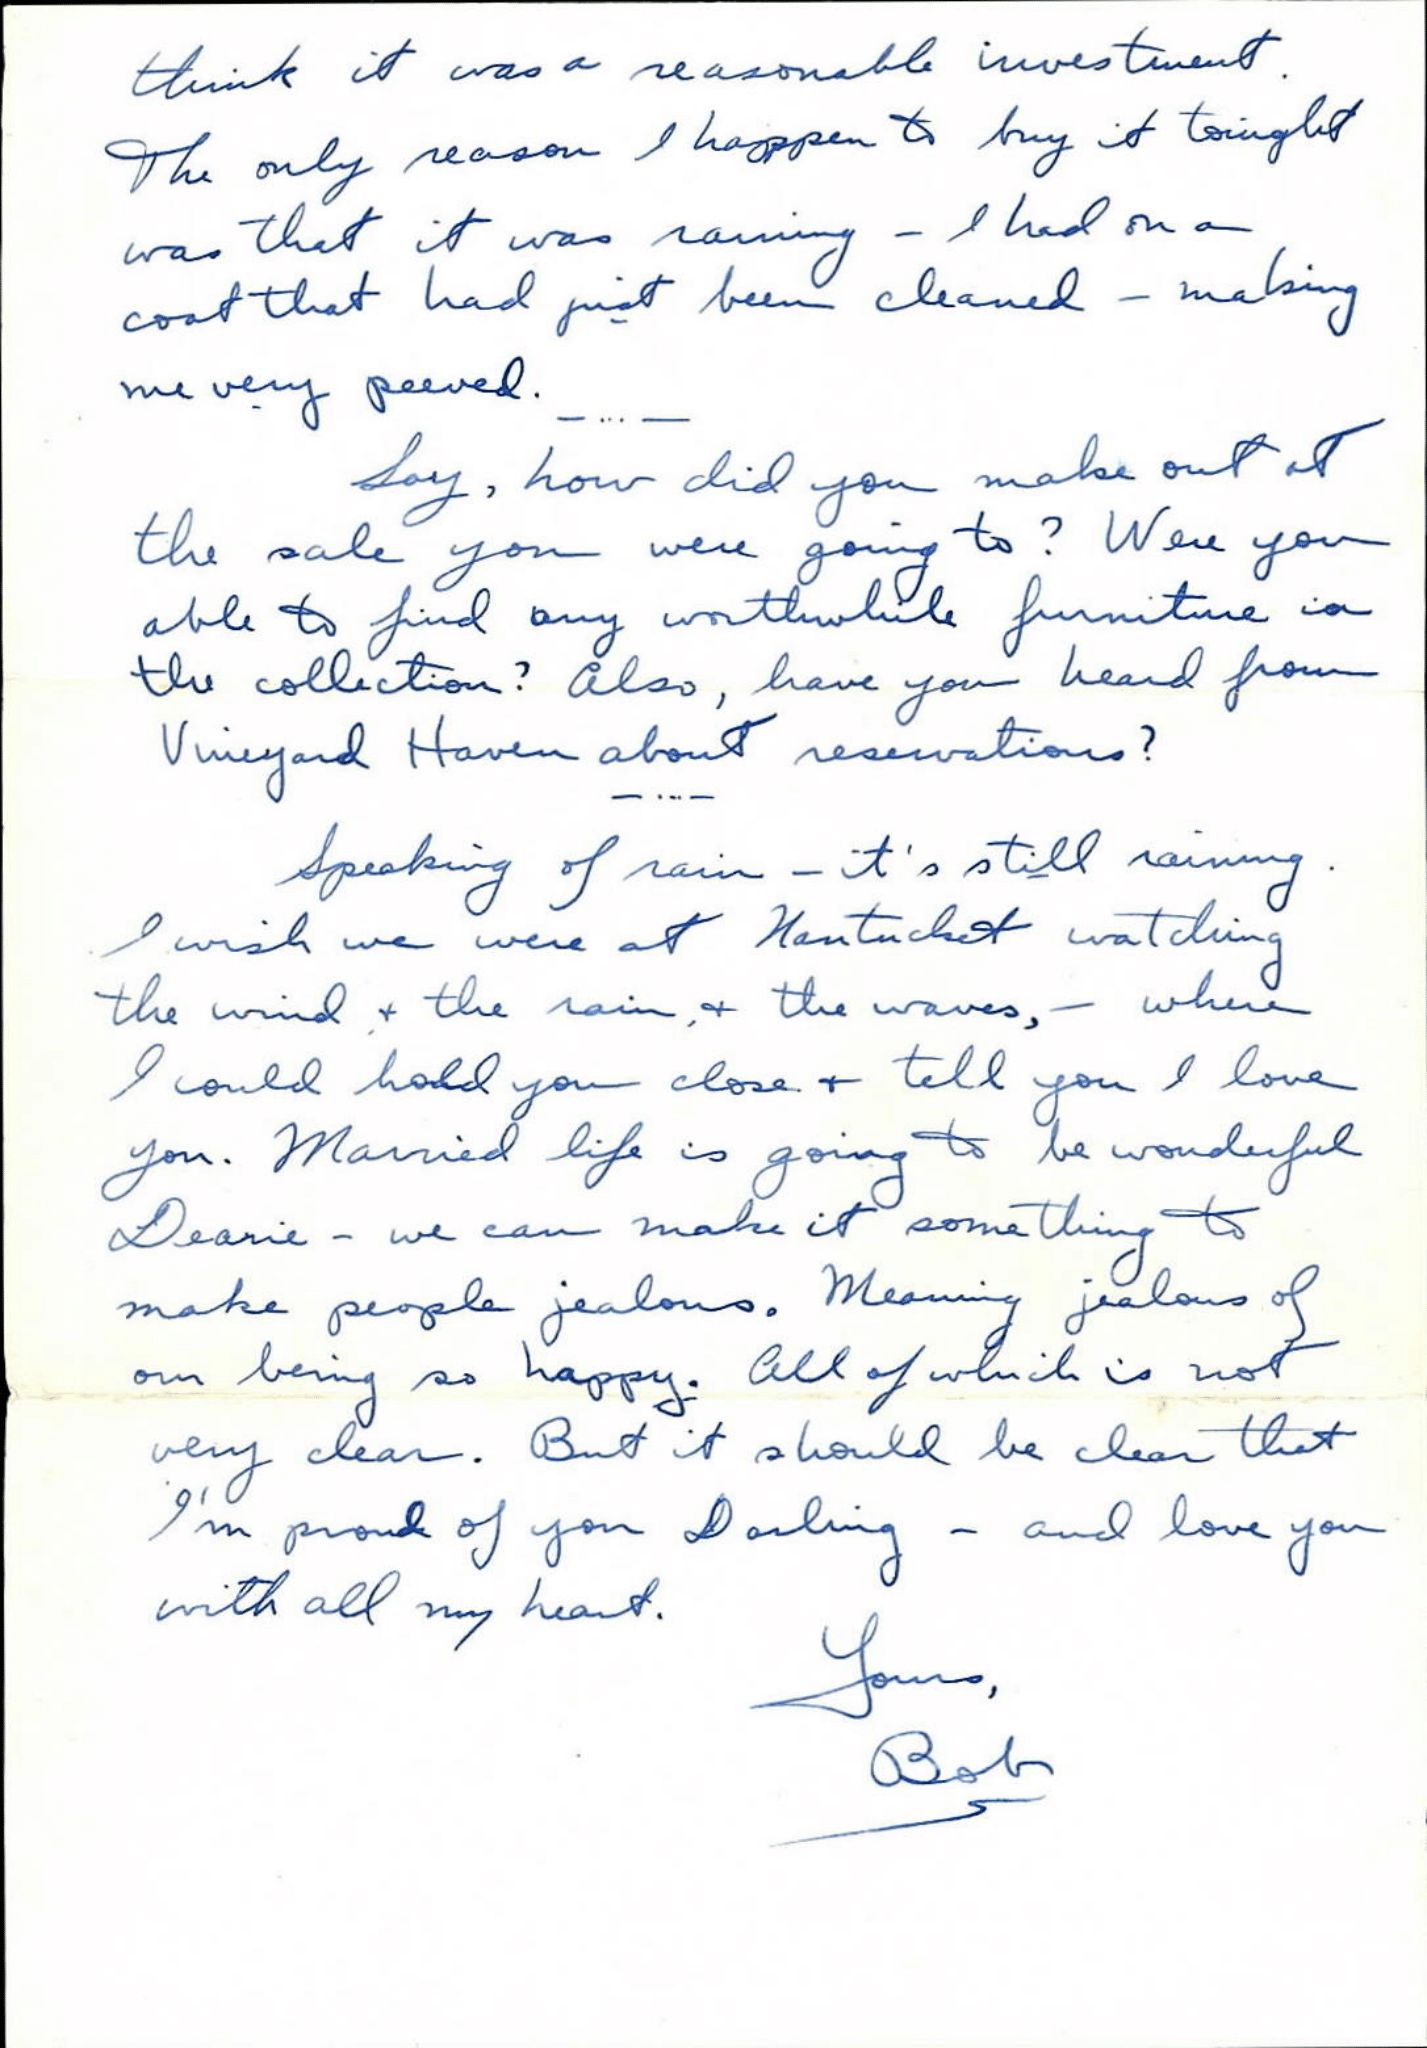 think it was a reasonable investment.
The only reason I happen to buy it tonight
was that it was raining – I had on a
coat that had just been cleaned – making
me very peeved.
– ... –
Say, how did you make out at
the sale you were going to? Were you
able to find any worthwhile furniture in
the collection? Also, have you heard from
Vineyard Haven about reservations?
– ... –
Speaking of rain – it's still raining.
I wish we were at Nantucket watching
the wind, + the rain, + the waves, – where
I could hold you close + tell you I love
you. Married life is going to be wonderful
Dearie – we can make it something to
make people jealous. Meaning jealous of
our being so happy. All of which is not
very clear. But it should be clear that
I'm proud of you Darling – and love you
with all my heart.
Yours,
Bob